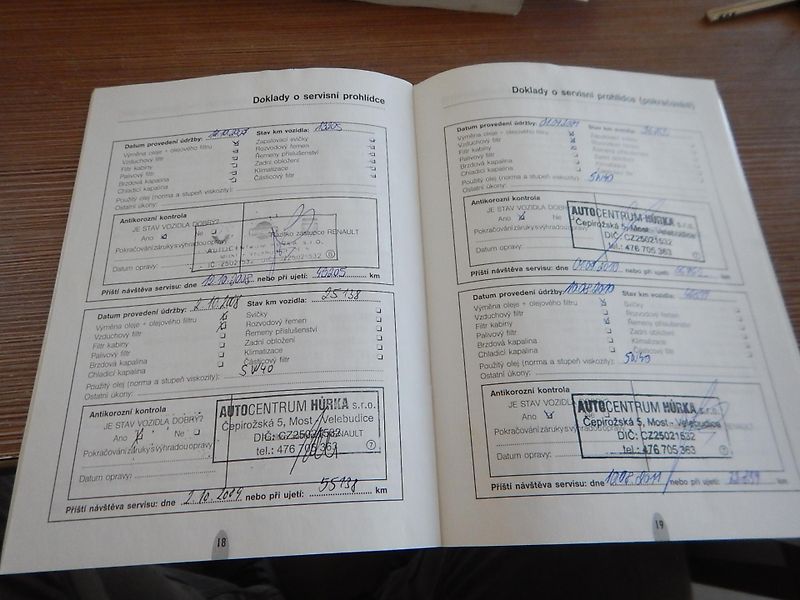 Doklady o servisní prohlídce
Datum provedení údržby: Stav km vozidla: 13205
Výměna oleje + olejového filtru Zapalovací svíčky
Vzduchový filtr Rozvodový řemen
Filtr kabiny Řemeny příslušenství
Palivový filtr Zadní obložení
Brzdová kapalina Klimatizace
Chladicí kapalina Částicový filtr
Použitý olej (norma a stupeň viskozity):
Ostatní úkony:
Antikorozní kontrola
JE STAV VOZIDLA DOBRÝ?
Ano Ne Razítko zástupce RENAULT
Pokračování záruky s výhradou opravy
Datum opravy:
Příští návštěva servisu: dne nebo při ujetí: 43205 km
Datum provedení údržby: 2.10.2008 Stav km vozidla: 25138
Výměna oleje + olejového filtru Svíčky
Vzduchový filtr Rozvodový řemen
Filtr kabiny Řemeny příslušenství
Palivový filtr Zadní obložení
Brzdová kapalina Klimatizace
Chladicí kapalina Částicový filtr
Použitý olej (norma a stupeň viskozity): 5W40
Ostatní úkony:
Antikorozní kontrola
JE STAV VOZIDLA DOBRÝ?
Ano Ne RENAULT
Pokračování záruky s výhradou opravy
Datum opravy:
AUTOCENTRUM HŮRKA s.r.o.
Čepirožská 5, Most - Velebudice
DIČ: CZ25021532
tel.: 476 705 363
7
Příští návštěva servisu: dne 2.10.2009 nebo při ujetí: 55138 km
18
Doklady o servisní prohlídce (pokračování)
Datum provedení údržby: Stav km vozidla:
Výměna oleje + olejového filtru Zapalovací svíčky
Vzduchový filtr Rozvodový řemen
Filtr kabiny Řemeny příslušenství
Palivový filtr Zadní obložení
Brzdová kapalina Klimatizace
Chladicí kapalina Částicový filtr
Použitý olej (norma a stupeň viskozity): 5W40
Ostatní úkony:
Antikorozní kontrola
JE STAV VOZIDLA DOBRÝ?
Ano Ne
Pokračování záruky s výhradou opravy
Datum opravy:
AUTOCENTRUM HŮRKA s.r.o.
Čepirožská 5, Most - Velebudice
DIČ: CZ25021532
tel.: 476 705 363
Příští návštěva servisu: dne nebo při ujetí: km
Datum provedení údržby: Stav km vozidla:
Výměna oleje + olejového filtru Svíčky
Vzduchový filtr Rozvodový řemen
Filtr kabiny Řemeny příslušenství
Palivový filtr Zadní obložení
Brzdová kapalina Klimatizace
Chladicí kapalina Částicový filtr
Použitý olej (norma a stupeň viskozity):
Ostatní úkony:
Antikorozní kontrola
JE STAV VOZIDLA DOBRÝ?
Ano Ne
Pokračování záruky s výhradou opravy
Datum opravy:
AUTOCENTRUM HŮRKA s.r.o.
Čepirožská 5, Most - Velebudice
DIČ: CZ25021532
tel.: 476 705 363
7
Příští návštěva servisu: dne nebo při ujetí: km
19